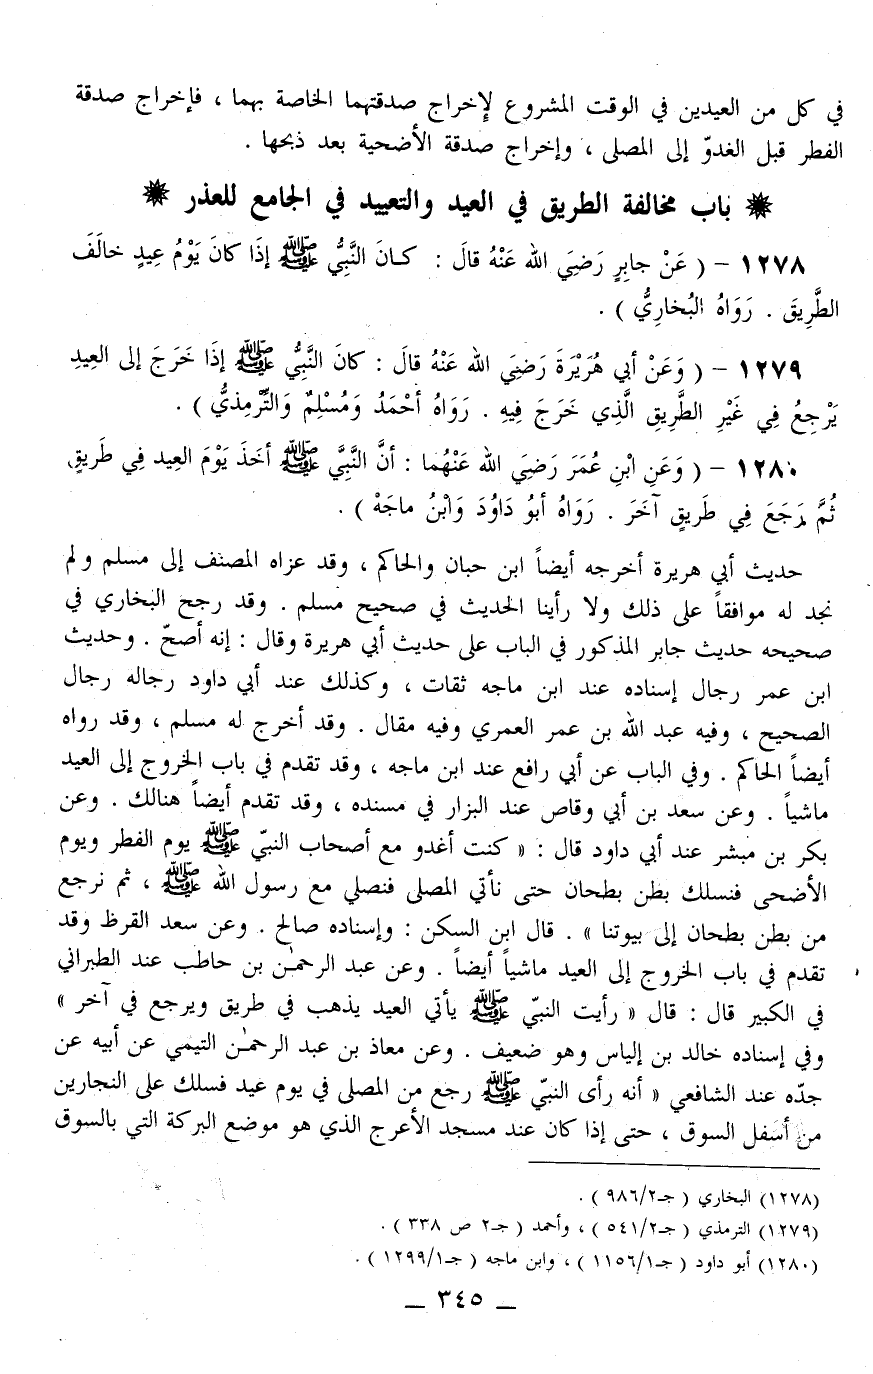 في كل من العيدين في الوقت المشروع لإخراج صدقتهما الخاصة بهما ، فإخراج صدقة
الفطر قبل الغدوّ إلى المصلى ، وإخراج صدقة الأضحية بعد ذبحها .
✵ باب مخالفة الطريق في العيد والتعييد في الجامع للعذر ✵
١٢٧٨ – ( عَنْ جابِرٍ رَضِيَ الله عَنْهُ قالَ : كـانَ النَّبِيُّ ﷺ إذَا كانَ يَوْمُ عِيدٍ خالَفَ
الطَّرِيقَ . رَوَاهُ البُخارِيُّ ) .
١٢٧٩ – ( وَعَنْ أبي هُرَيْرَةَ رَضِيَ الله عَنْهُ قالَ : كانَ النَّبِيُّ ﷺ إذَا خَرَجَ إلى العِيدِ
يَرْجِعُ فِي غَيْرِ الطَّرِيقِ الَّذِي خَرَجَ فِيهِ . رَوَاهُ أحْمَدُ وَمُسْلِمٌ وَالتِّرْمِذيُّ ) .
١٢٨٠ – ( وَعَنِ ابْنِ عُمَرَ رَضِيَ الله عَنْهُما : أنَّ النَّبِيَّ ﷺ أخَذَ يَوْمَ العِيد فِي طَرِيقٍ
ثُمَّ رَجَعَ فِي طَرِيقٍ آخَرَ . رَوَاهُ أبُو دَاوُدَ وَابْنُ ماجَهْ ) .
حديث أبي هريرة أخرجه أيضاً ابن حبان والحاكم ، وقد عزاه المصنف إلى مسلم ولم
نجد له موافقاً على ذلك ولا رأينا الحديث في صحيح مسلم . وقد رجح البخاري في
صحيحه حديث جابر المذكور في الباب على حديث أبي هريرة وقال : إنه أصحّ . وحديث
ابن عمر رجال إسناده عند ابن ماجه ثقات ، وكذلك عند أبي داود رجاله رجال
الصحيح ، وفيه عبد الله بن عمر العمري وفيه مقال . وقد أخرج له مسلم ، وقد رواه
أيضاً الحاكم . وفي الباب عن أبي رافع عند ابن ماجه ، وقد تقدم في باب الخروج إلى العيد
ماشياً . وعن سعد بن أبي وقاص عند البزار في مسنده ، وقد تقدم أيضاً هنالك . وعن
بكر بن مبشر عند أبي داود قال : « كنت أغدو مع أصحاب النبيّ ﷺ يوم الفطر ويوم
الأضحى فنسلك بطن بطحان حتى نأتي المصلى فنصلي مع رسول الله ﷺ ، ثم نرجع
من بطن بطحان إلى بيوتنا » . قال ابن السكن : وإسناده صالح . وعن سعد القرظ وقد
تقدم في باب الخروج إلى العيد ماشياً أيضاً . وعن عبد الرحمٰن بن حاطب عند الطبراني
في الكبير قال : قال « رأيت النبيّ ﷺ يأتي العيد يذهب في طريق ويرجع في آخر »
وفي إسناده خالد بن إلياس وهو ضعيف . وعن معاذ بن عبد الرحمٰن التيمي عن أبيه عن
جدّه عند الشافعي « أنه رأى النبيّ ﷺ رجع من المصلى في يوم عيد فسلك على النجارين
من أسفل السوق ، حتى إذا كان عند مسجد الأعرج الذي هو موضع البركة التي بالسوق
(١٢٧٨) البخاري ( جـ٩٨٦/٢ ) .
(١٢٧٩) الترمذي ( جـ٥٤١/٢ ) ، وأحمد ( جـ٢ ص ٣٣٨ ) .
(١٢٨٠) أبو داود ( جـ١١٥٦/١ ) ، وابن ماجه ( جـ١٢٩٩/١ ) .
— ٣٤٥ —